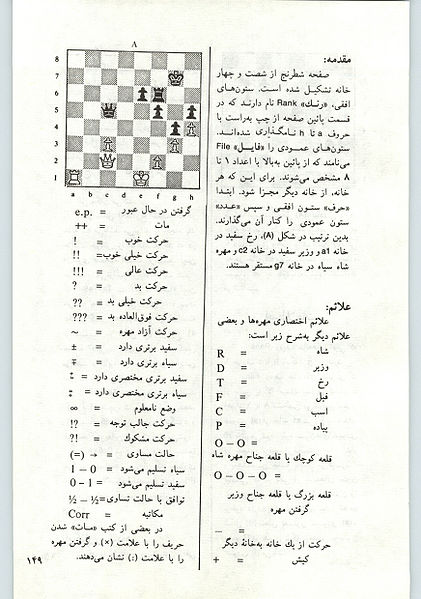 مقدمه:
صفحه شطرنج از شصت و چهار
خانه تشکیل شده است. ستون‌های
افقی، «رنك» Rank نام دارند که در
قسمت پائین صفحه از چپ به‌راست با
حروف a تا h نامگذاری شده‌اند.
ستون‌های عمودی را «فایـل» File
می‌نامند که از پائین به‌بالا با اعداد ۱ تا
۸ مشخص می‌شوند. برای این که هر
خانه، از خانه دیگر مجزا شود. ابتدا
«حرف» ستون افقی و سپس «عـدد»
ستون عمودی را کنار آن می‌گذارند.
بدین ترتیب در شکل (A)، رخ سفید در
خانه a1 و وزیر سفید در خانه c2 و مهره
شاه سیاه در خانه g7 مستقر هستند.
علائم:
علائم اختصاری مهره‌ها و بعضی
علائم دیگر به‌شرح زیر است:
شاه = R
وزیر = D
رخ = T
فیل = F
اسب = C
پیاده = P
O – O =
قلعه کوچك یا قلعه جناح مهره شاه
O – O – O =
قلعه بزرگ یا قلعه جناح وزیر
گرفتن مهره
– =
حرکت از یك خانه به‌خانهٔ دیگر
کیش = +
A
8
7
6
5
4
3
2
1
a b c d e f g h
گرفتن در حال عبور = e.p.
مات = ++
حرکت خوب = !
حرکت خیلی خوب= !!
حرکت عالی = !!!
حرکت بد = ?
حرکت خیلی بد = ??
حرکت فوق‌العاده بد = ???
حرکت آزاد مهره = ~
سفید برتری دارد = ±
سیاه برتری دارد = ∓
سفید برتری مختصری دارد =
سیاه برتری مختصری دارد =
وضع نامعلوم = ∞
حرکت جالب توجه = !?
حرکت مشکوك = ?!
حالت مساوی = → (=)
سیاه تسلیم می‌شود = 1 – 0
سفید تسلیم می‌شود = 0 – 1
توافق با حالت تساوی = ½ – ½
مکاتبه = Corr
در بعضی از کتب «مـات» شدن
حریف را با علامت (×) و گرفتن مهره
را با علامت (:) نشان می‌دهند.
۱۴۹